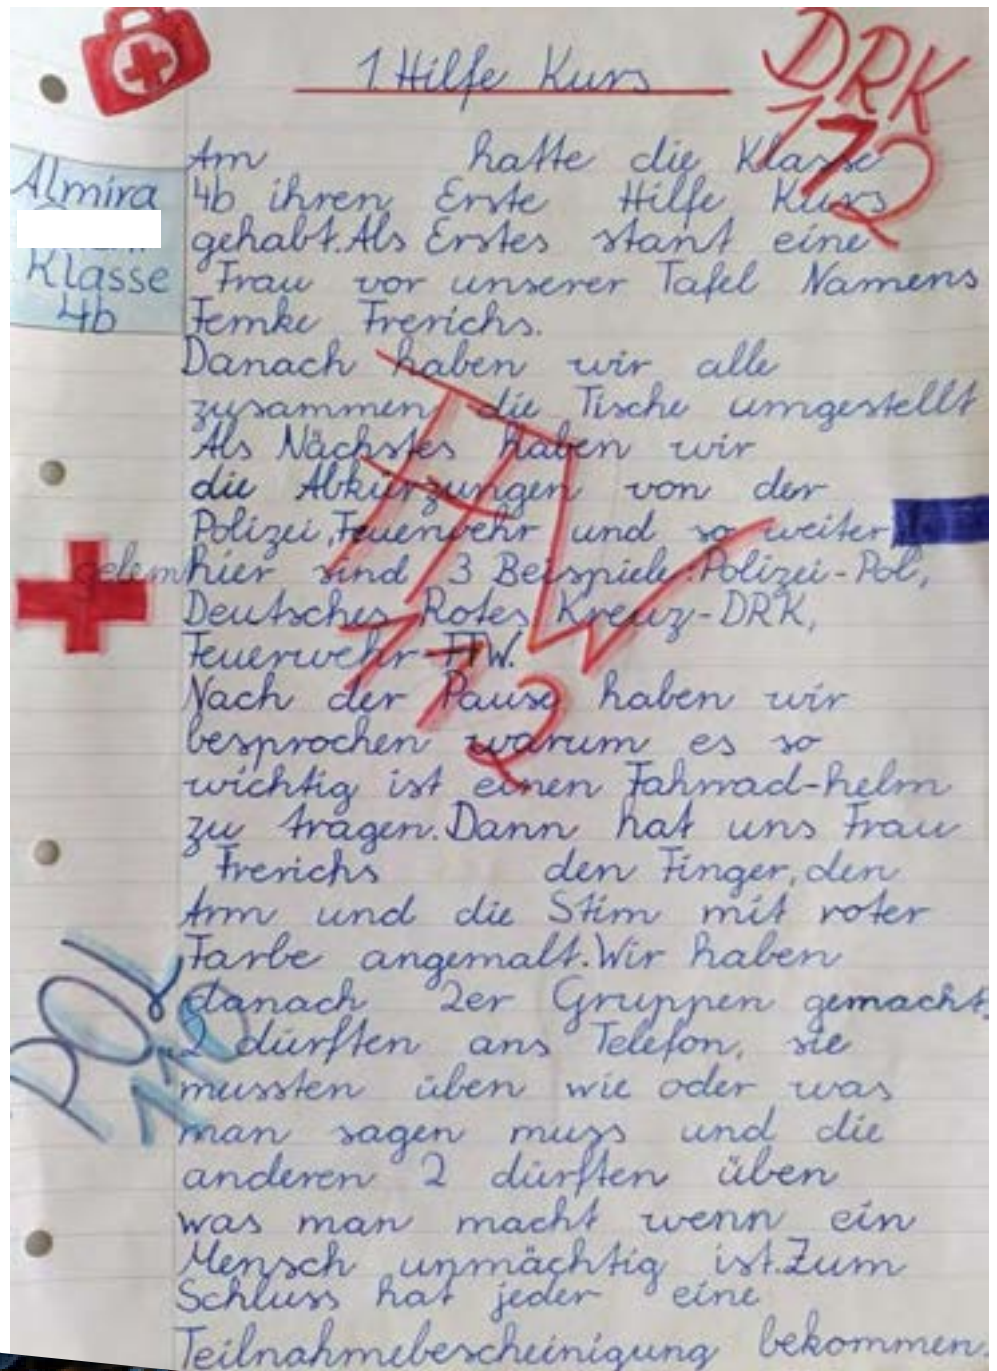 1. Hilfe Kurs
DRK
112
Almira
Klasse
4b
Am hatte die Klasse
4b ihren Erste Hilfe Kurs
gehabt. Als Erstes stant eine
Frau vor unserer Tafel Namens
Femke Frerichs.
Danach haben wir alle
zusammen die Tische umgestellt
Als Nächstes haben wir
die Abkürzungen von der
Polizei, Feuerwehr und so weiter
gelernt hier sind 3 Beispiele: Polizei-Pol,
Deutsches Rotes Kreuz-DRK,
Feuerwehr-FFW.
Nach der Pause haben wir
besprochen warum es so
wichtig ist einen Fahrrad-helm
zu tragen. Dann hat uns Frau
Frerichs den Finger, den
Arm und die Stirn mit roter
Farbe angemalt. Wir haben
danach 2er Gruppen gemacht.
2 dürften ans Telefon, sie
mussten üben wie oder was
man sagen muss und die
anderen 2 dürften üben
was man macht wenn ein
Mensch unmächtig ist. Zum
Schluss hat jeder eine
Teilnahmebescheinigung bekommen.
FFW
112
POL
110